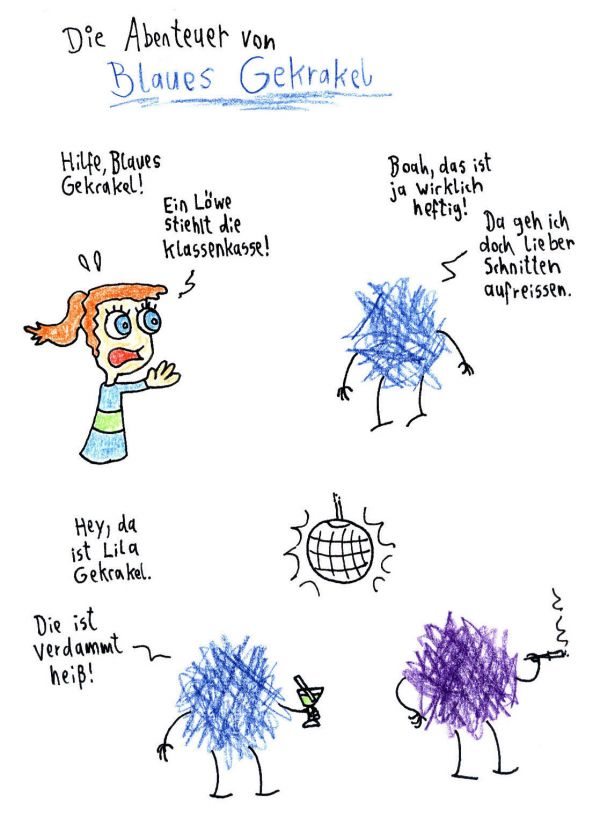 Die Abenteuer von
Blaues Gekrakel
Hilfe, Blaues
Gekrakel!
Ein Löwe
stiehlt die
Klassenkasse!
Boah, das ist
ja wirklich
heftig!
Da geh ich
doch lieber
Schnitten
aufreissen.
Hey, da
ist Lila
Gekrakel.
Die ist
verdammt
heiß!